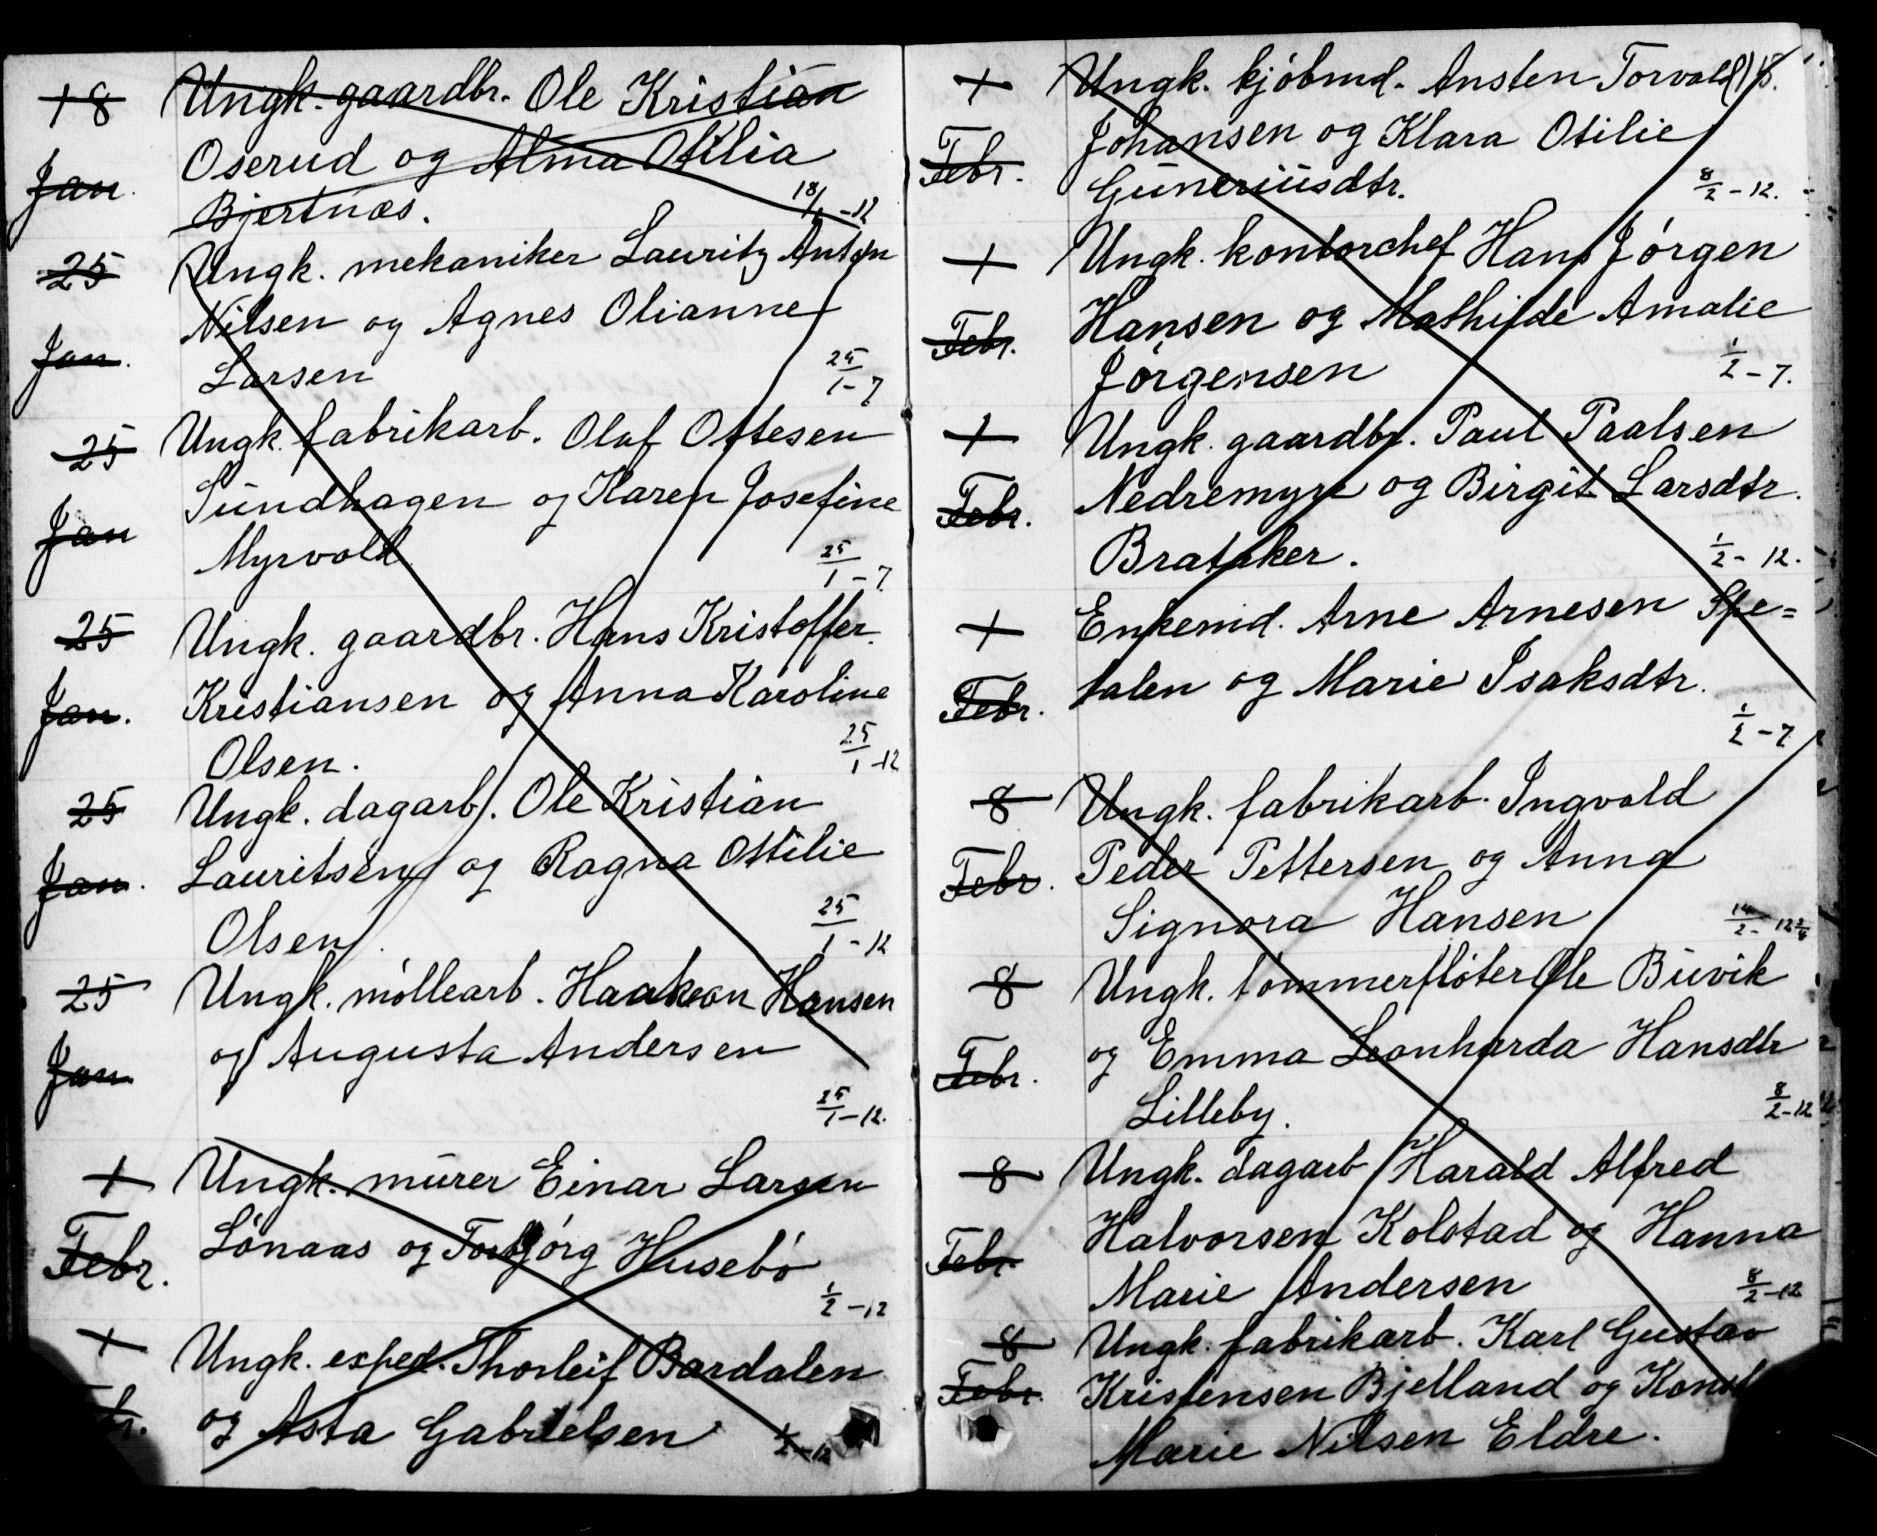 18 Ungk. gaardbr. Ole Kristian
Oserud og Alma Otilia
Jan. Bjertnæs. 18/1-12
25 Ungk. mekaniker Lauritz Anton
Nilsen og Agnes Olianne
Jan. Larsen 25/1-7
25 Ungk. fabrikarb. Olaf Ottesen
Sundhagen og Karen Josefine
Jan Myrvold. 25/1-7
25 Ungk. gaardbr. Hans Kristoffer
Jan. Kristiansen og Anna Karoline
Olsen. 25/1-12
25 Ungk. dagarb. Ole Kristian
Jan. Lauritsen og Ragna Ottilie
Olsen. 25/1-12
25 Ungk. møllearb. Haakon Hansen
Jan. og Augusta Andersen
25/1-12.
1 Ungk. murer Einar Larsen
Febr. Lønaas og Torbjørg Husebø
1/2-12
1 Ungk. exped. Thorleif Bardalen
og Asta Gabrielsen 1/2-12
1 Ungk. kjøbmd. Ansten Torvald
Febr. Johansen og Klara Otilie
Guneriusdtr. 8/2-12.
1 Ungk. kontorchef Hans Jørgen
Febr. Hansen og Mathilde Amalie
Jørgensen 1/2-7.
1 Ungk. gaardbr. Paul Paalsen
Febr. Nedremyre og Birgit Larsdtr.
Brataker. 1/2-12.
1 Enkemd. Arne Arnesen Spe=
Febr. talen og Marie Isaksdtr.
1/2-7
8 Ungk. fabrikarb. Ingvald
Febr. Peder Pettersen og Anna
Signora Hansen 14/2-12
8 Ungk. tømmerfløter Ole Buvik
Febr. og Emma Leonharda Hansdtr
Lilleby. 8/2-12
8 Ungk. dagarb Harald Alfred
Febr. Halvorsen Kolstad og Hanna
Marie Andersen 8/2-12
8 Ungk. fabrikarb. Karl Gustav
Febr. Kristensen Bjelland og
Marie Nilsen Eldre.